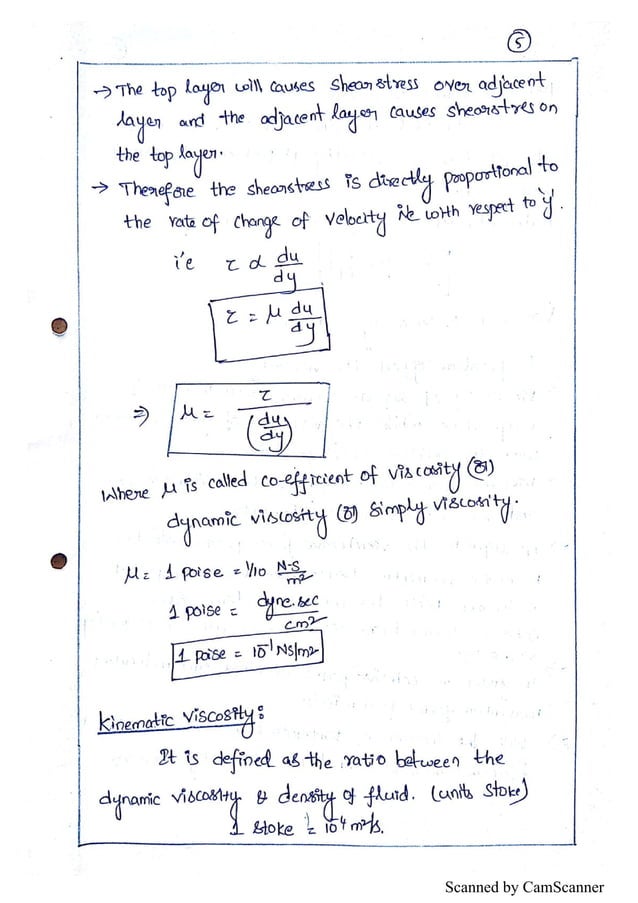 5
→ The top layer will causes shear stress over adjacent
layer and the adjacent layer causes shearstres on
the top layer.
→ Therefore the shearstress is directly proportional to
the rate of change of velocity with respect to 'y'.
i'e τ α du/dy
τ = μ du/dy
⇒ μ = τ/(du/dy)
Where μ is called co-efficient of viscosity (or)
dynamic viscosity (or) simply viscosity.
μ = 1 poise = 1/10 N-S/m²
1 poise = dyne.sec/cm²
1 poise = 10⁻¹ Ns/m²
Kinematic viscosity:
It is defined as the ratio between the
dynamic viscosity & density of fluid. (units stoke)
1 stoke = 10⁻⁴ m²/s.
Scanned by CamScanner